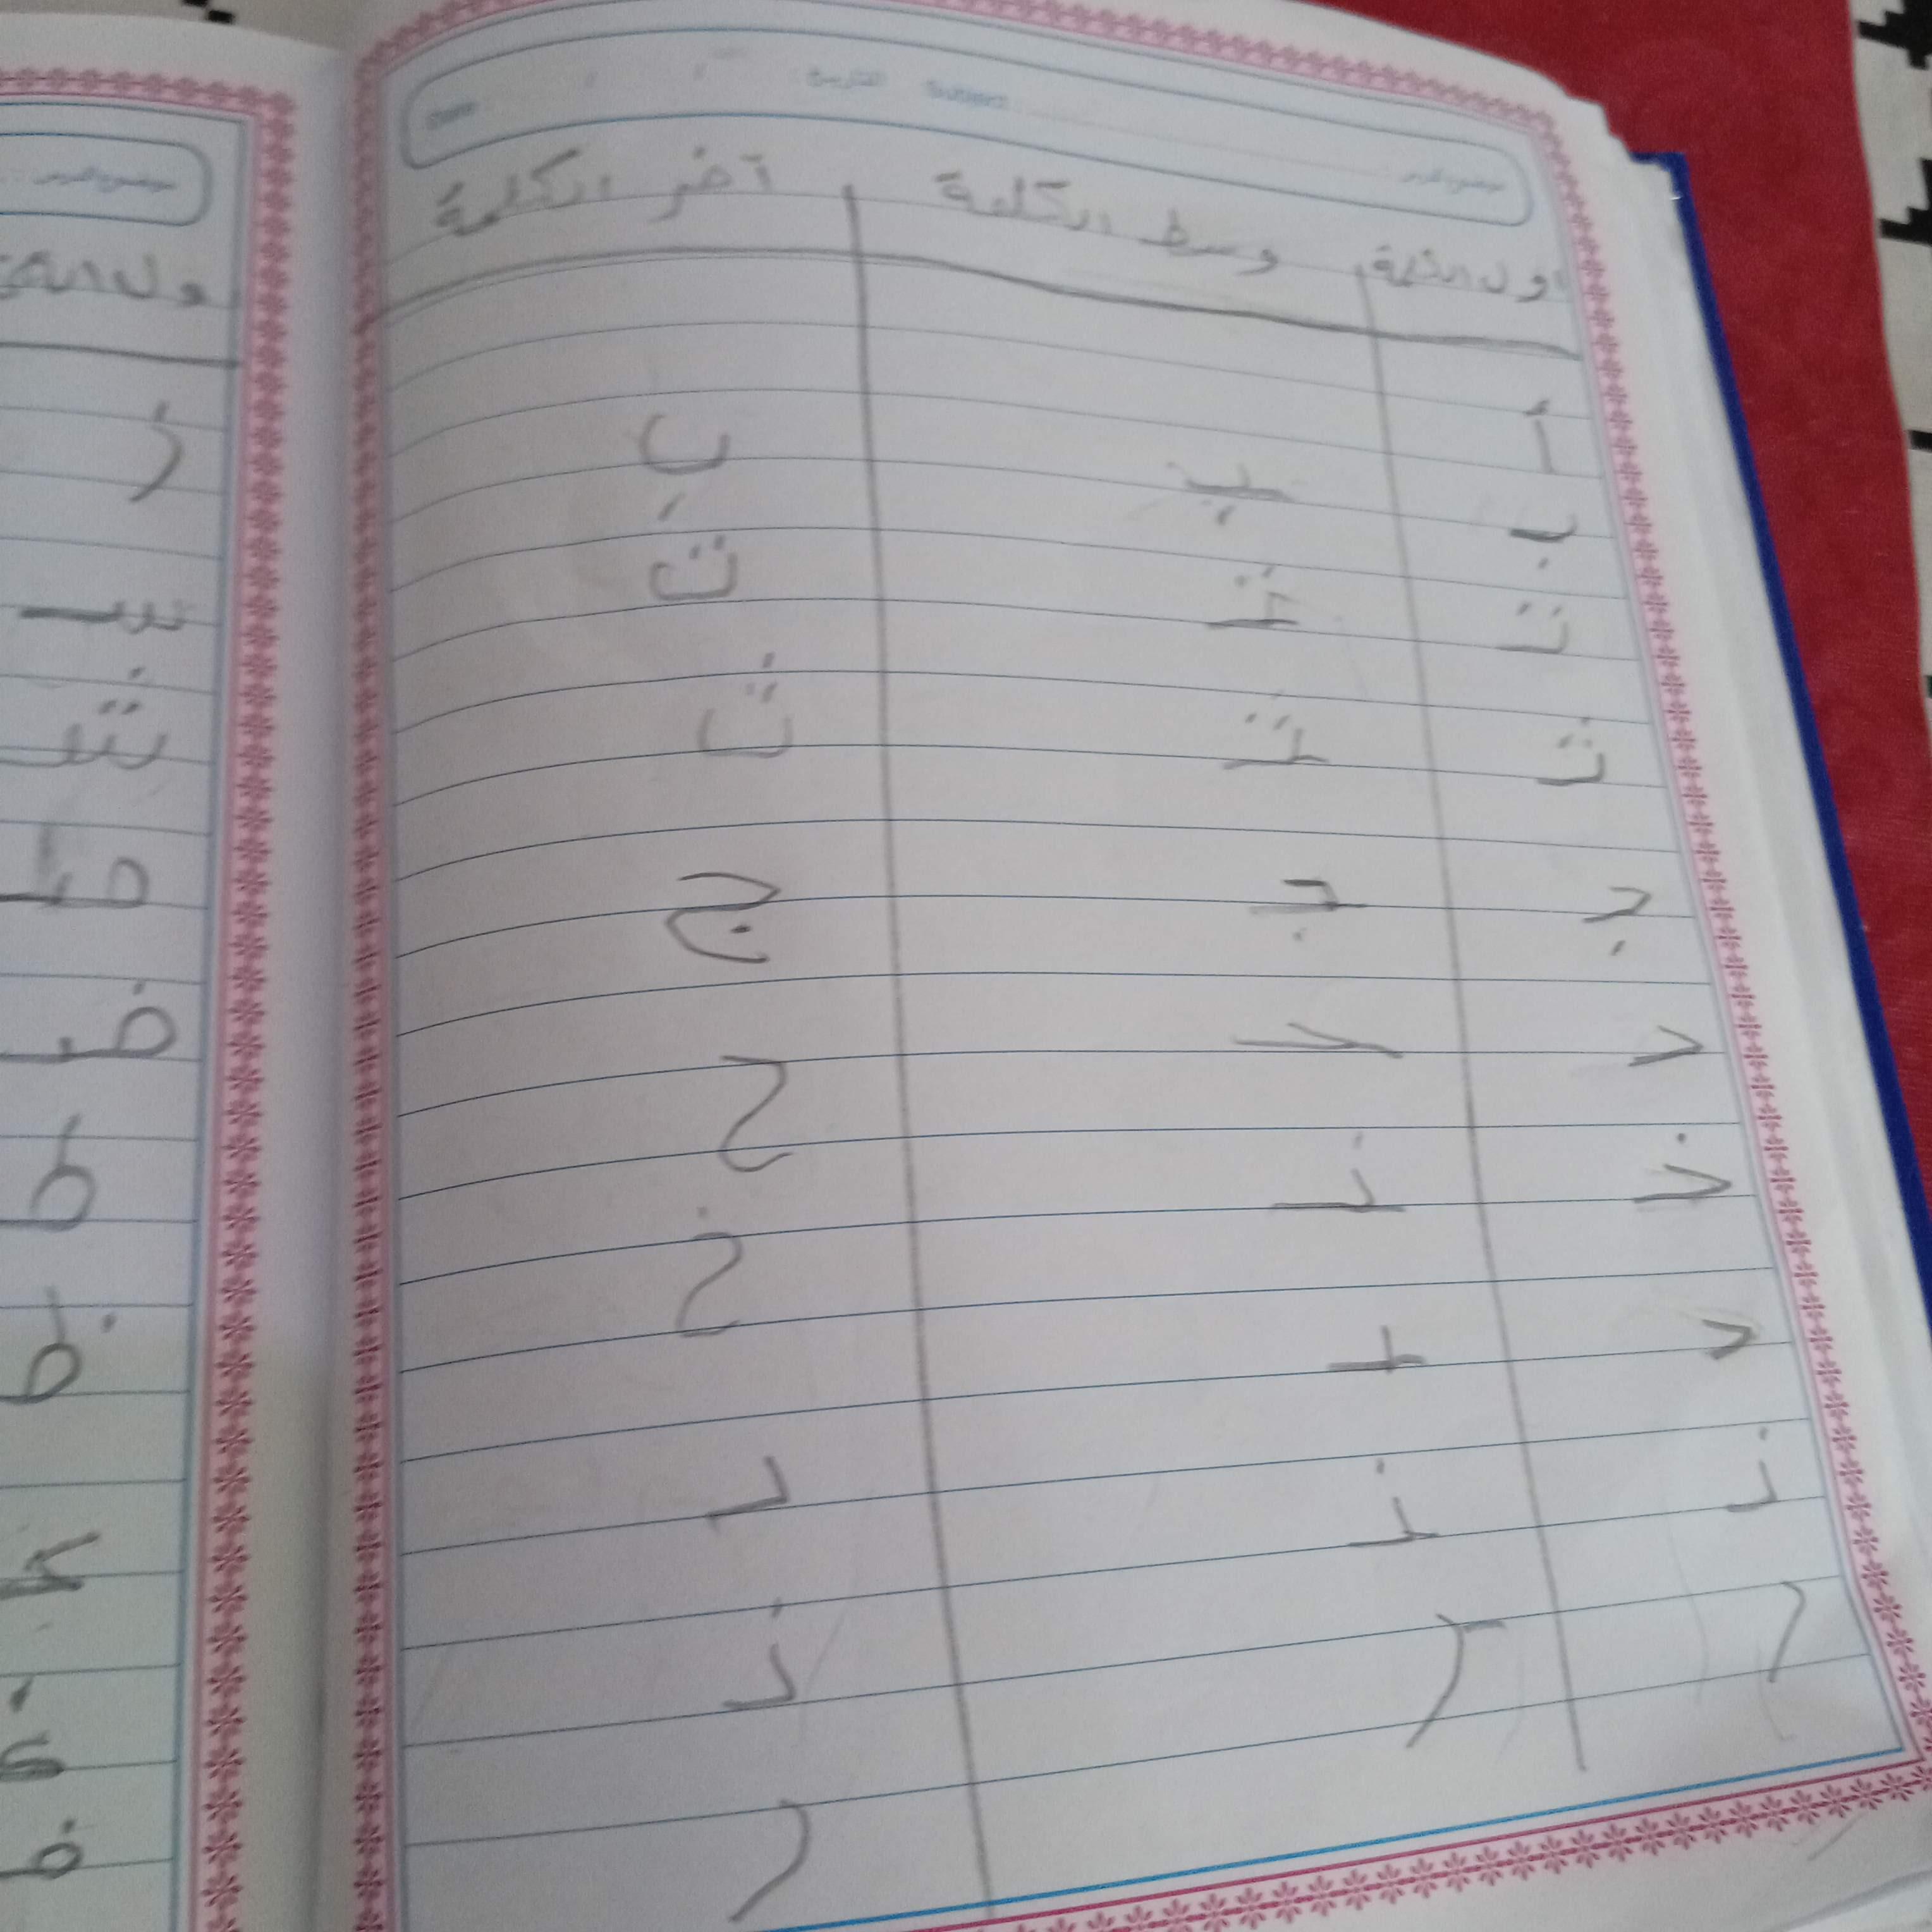 موضوع الدرس : Subject : التاريخ : / / Date :
اول الكلمة وسط الكلمة آخر الكلمة
أ
بـ ـبـ ب
تـ ـتـ ت
ثـ ـثـ ث
جـ ـجـ ج
حـ ـحـ ح
خـ ـخـ خ
د ـد د
ذ ـذ ذ
ر ـر ر
موضوع الدرس :
ز
سـ
شـ
صـ
ضـ
ط
ظ